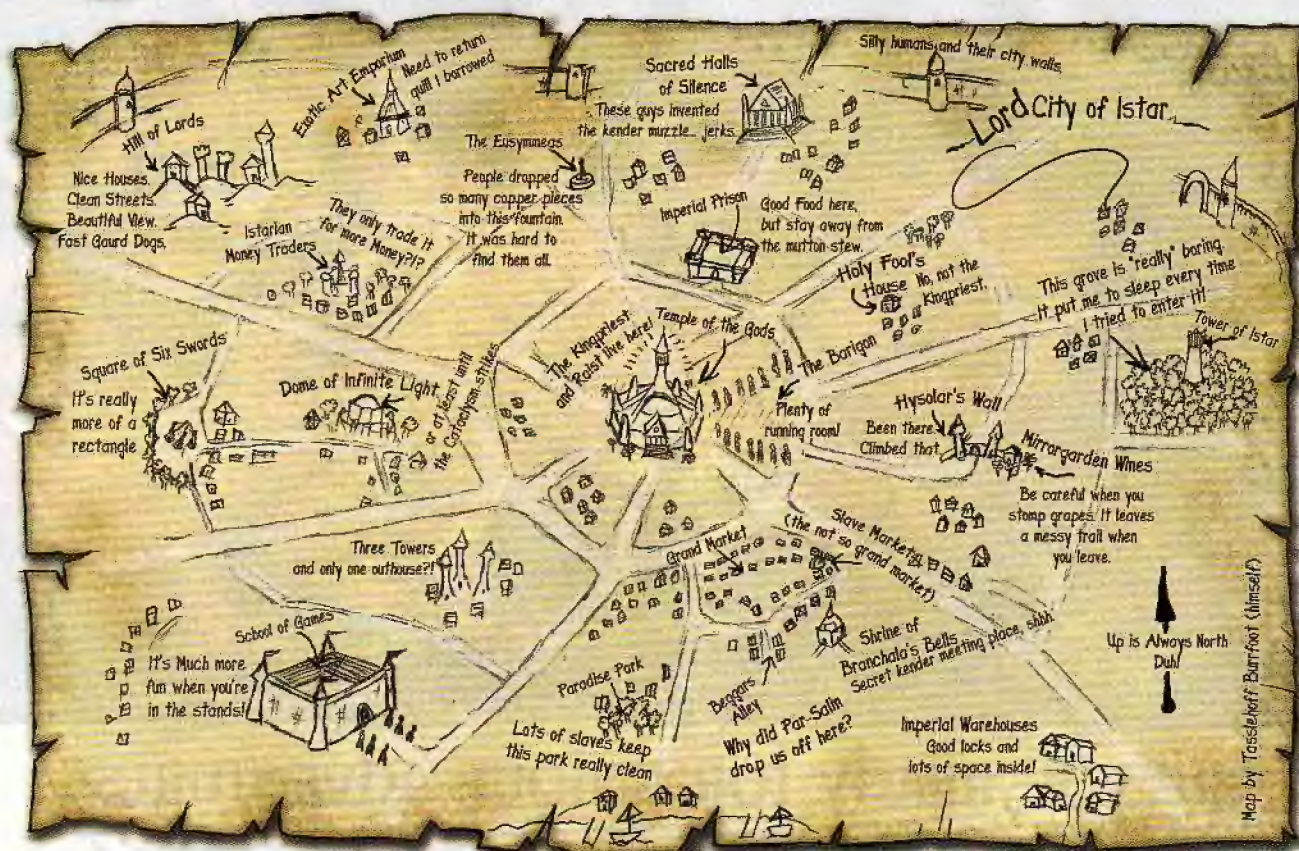 Silly humans and their city walls.
Lord City of Istar
Exotic Art Emporium
Need to return
quill I borrowed
Sacred Halls
of Silence
These guys invented
the kender muzzle... jerks.
Hill of Lords
Nice Houses.
Clean Streets.
Beautiful View.
Fast Gaurd Dogs.
The Eusymmeas
People dropped
so many copper pieces
into this fountain.
It was hard to
find them all.
Istarian
Money Traders
They only trade it
for more Money?!?
Imperial Prison
Good Food here,
but stay away from
the mutton stew.
Holy Fool's
House
No, not the
Kingpriest.
This grove is "really" boring.
It put me to sleep every time
I tried to enter it!
Tower of Istar
Square of Six Swords
It's really
more of a
rectangle
Dome of Infinite Light
or at least until
the Cataclysm strikes
The Kingpriest
and Raist live here!
Temple of the Gods
The Barigon
Plenty of
running room!
Hysolar's Wall
Been there
Climbed that
Mirrorgarden Wines
Be careful when you
stomp grapes. It leaves
a messy trail when
you leave.
Three Towers
and only one outhouse?!
Grand Market
Slave Markets
(the not so grand market)
Shrine of
Branchala's Bells
Secret kender meeting place, shhh
School of Games
It's Much more
fun when you're
in the stands!
Paradise Park
Lots of slaves keep
this park really clean
Beggars
Alley
Why did Par-Salin
drop us off here?
Imperial Warehouses
Good locks and
lots of space inside!
Up is Always North
Duh!
Map by Tasslehoff Burrfoot (himself)